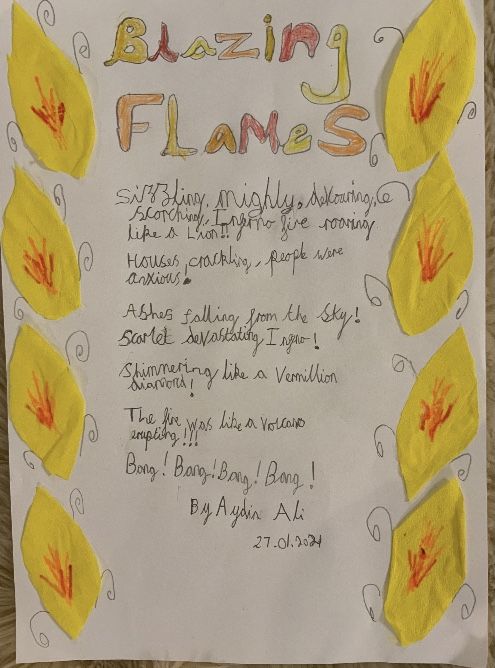 Blazing
FLAMeS
Sizzling, mighty, devouring,
scorching, Ingerno fire roaring
like a Lion!!
Houses, crackling, people were
anxious.
Ashes falling from the Sky!
Scarlet devastating Ingerno!
Shimmering like a Vermillion
diamond!
The fire was like a Volcano
erupting!!!
Bang! Bang! Bang! Bang!
By Aydin Ali
27.01.2021